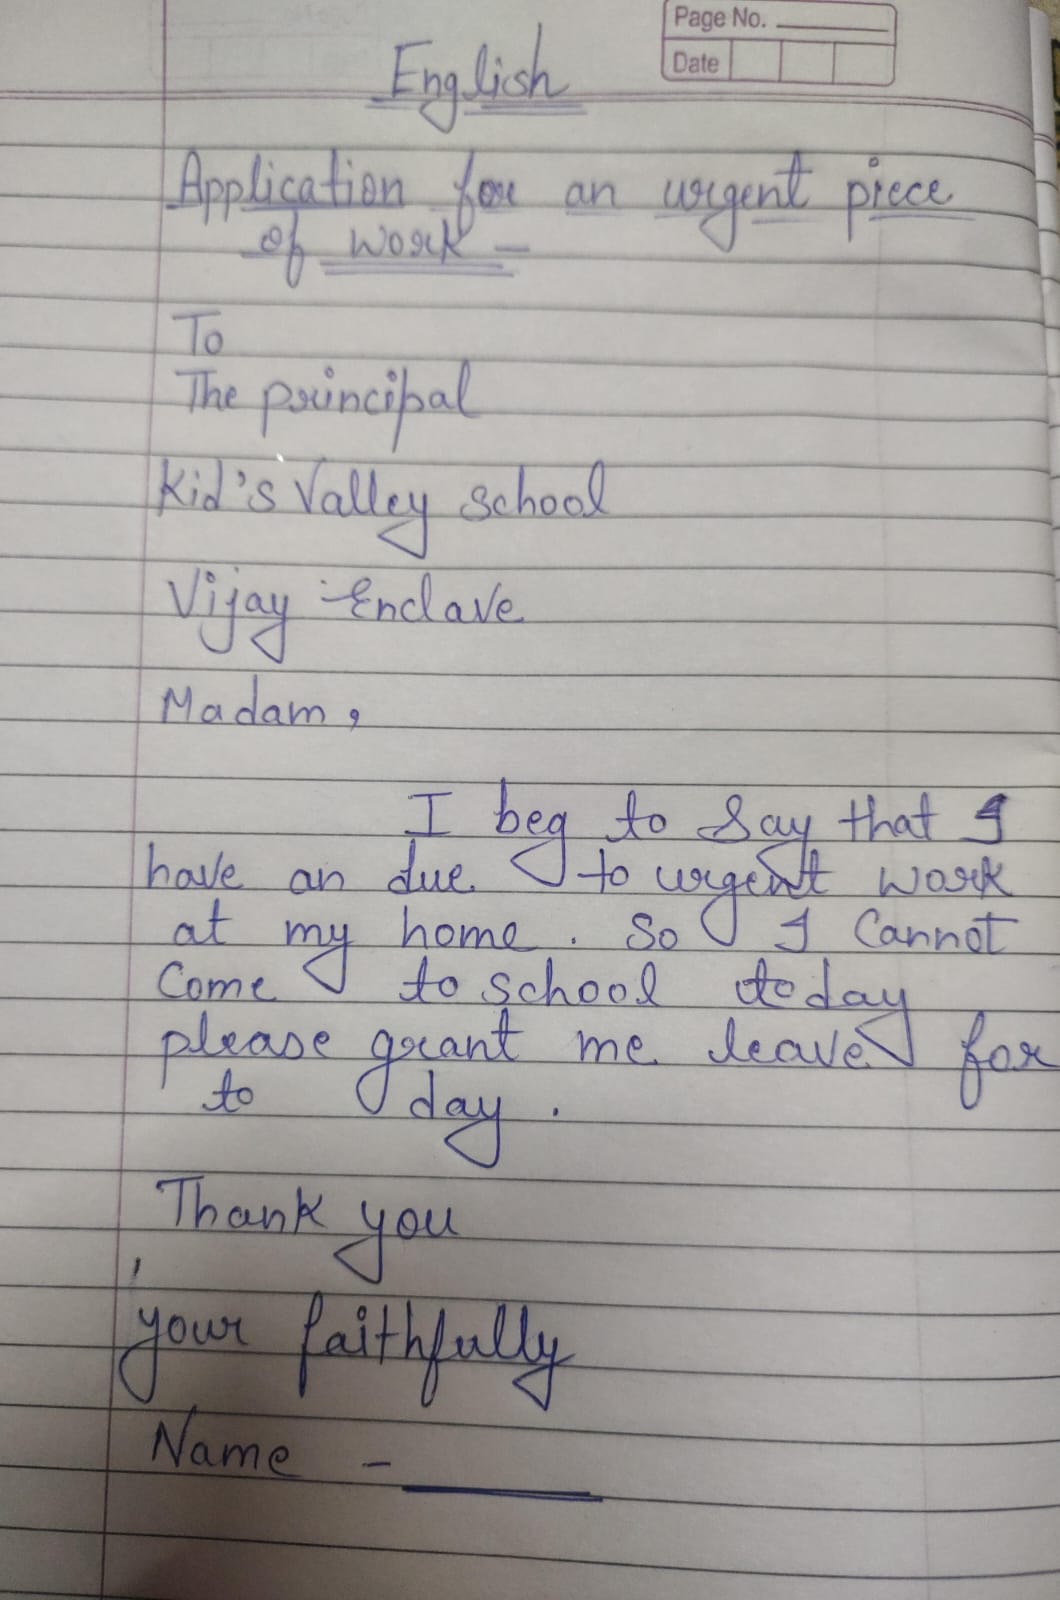 Page No.
Date
English
Application for an urgent piece
of work -
To
The principal
Kid's Valley school
Vijay Enclave
Madam,
I beg to say that I
have an due to urgent work
at my home. So I Cannot
Come to school today
please grant me leave for
to day.
Thank you
your faithfully
Name -